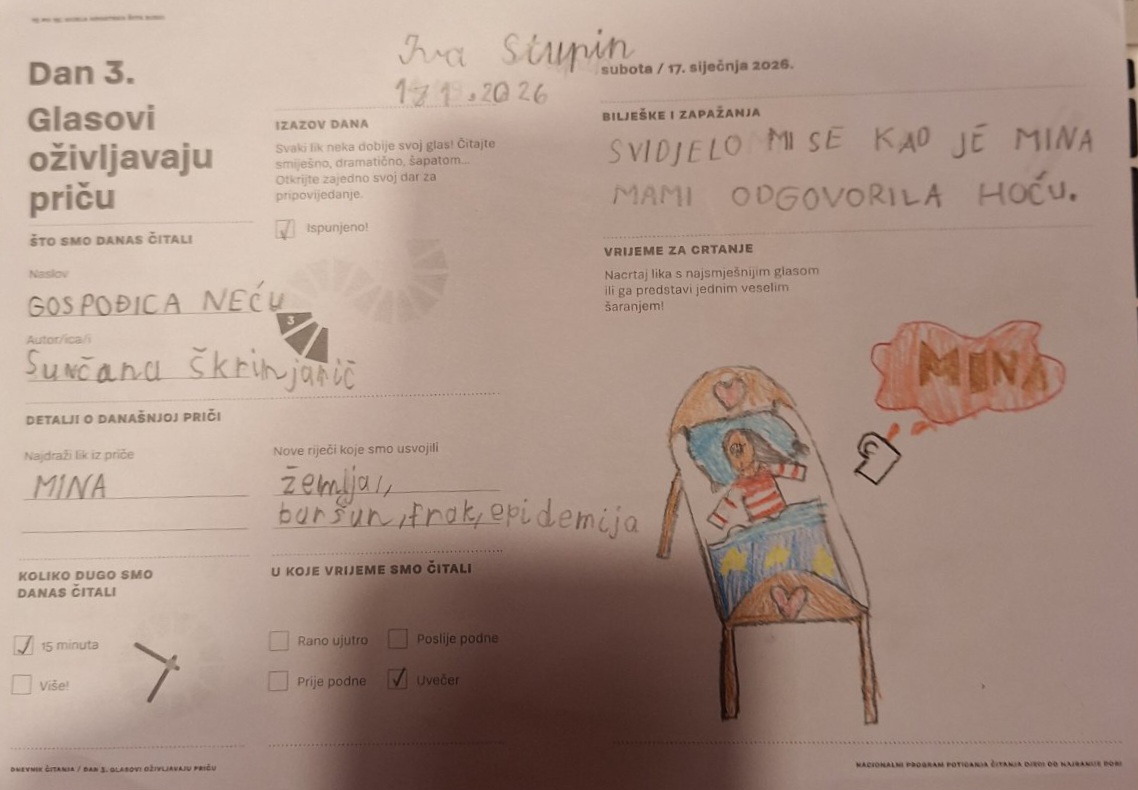 Dan 3.
Glasovi
oživljavaju
priču
Iva Stupin
17 1.2026
subota / 17. siječnja 2026.
IZAZOV DANA
Svaki lik neka dobije svoj glas! Čitajte
smiješno, dramatično, šapatom...
Otkrijte zajedno svoj dar za
pripovijedanje.
Ispunjeno!
ŠTO SMO DANAS ČITALI
Naslov
GOSPOĐICA NEĆU
3
Autor/ica/i
Sunčana škrinjarić
DETALJI O DANAŠNJOJ PRIČI
Najdraži lik iz priče
MINA
Nove riječi koje smo usvojili
žemlja,
baršun, frak, epidemija
KOLIKO DUGO SMO
DANAS ČITALI
15 minuta
Više!
U KOJE VRIJEME SMO ČITALI
Rano ujutro
Poslije podne
Prije podne
Uvečer
BILJEŠKE I ZAPAŽANJA
SVIDJELO MI SE KAD JE MINA
MAMI ODGOVORILA HOĆU.
VRIJEME ZA CRTANJE
Nacrtaj lika s najsmješnijim glasom
ili ga predstavi jednim veselim
šaranjem!
MINA
DNEVNIK ČITANJA / DAN 3. GLASOVI OŽIVLJAVAJU PRIČU
NACIONALNI PROGRAM POTICANJA ČITANJA DJECI OD NAJRANIJE DOBI